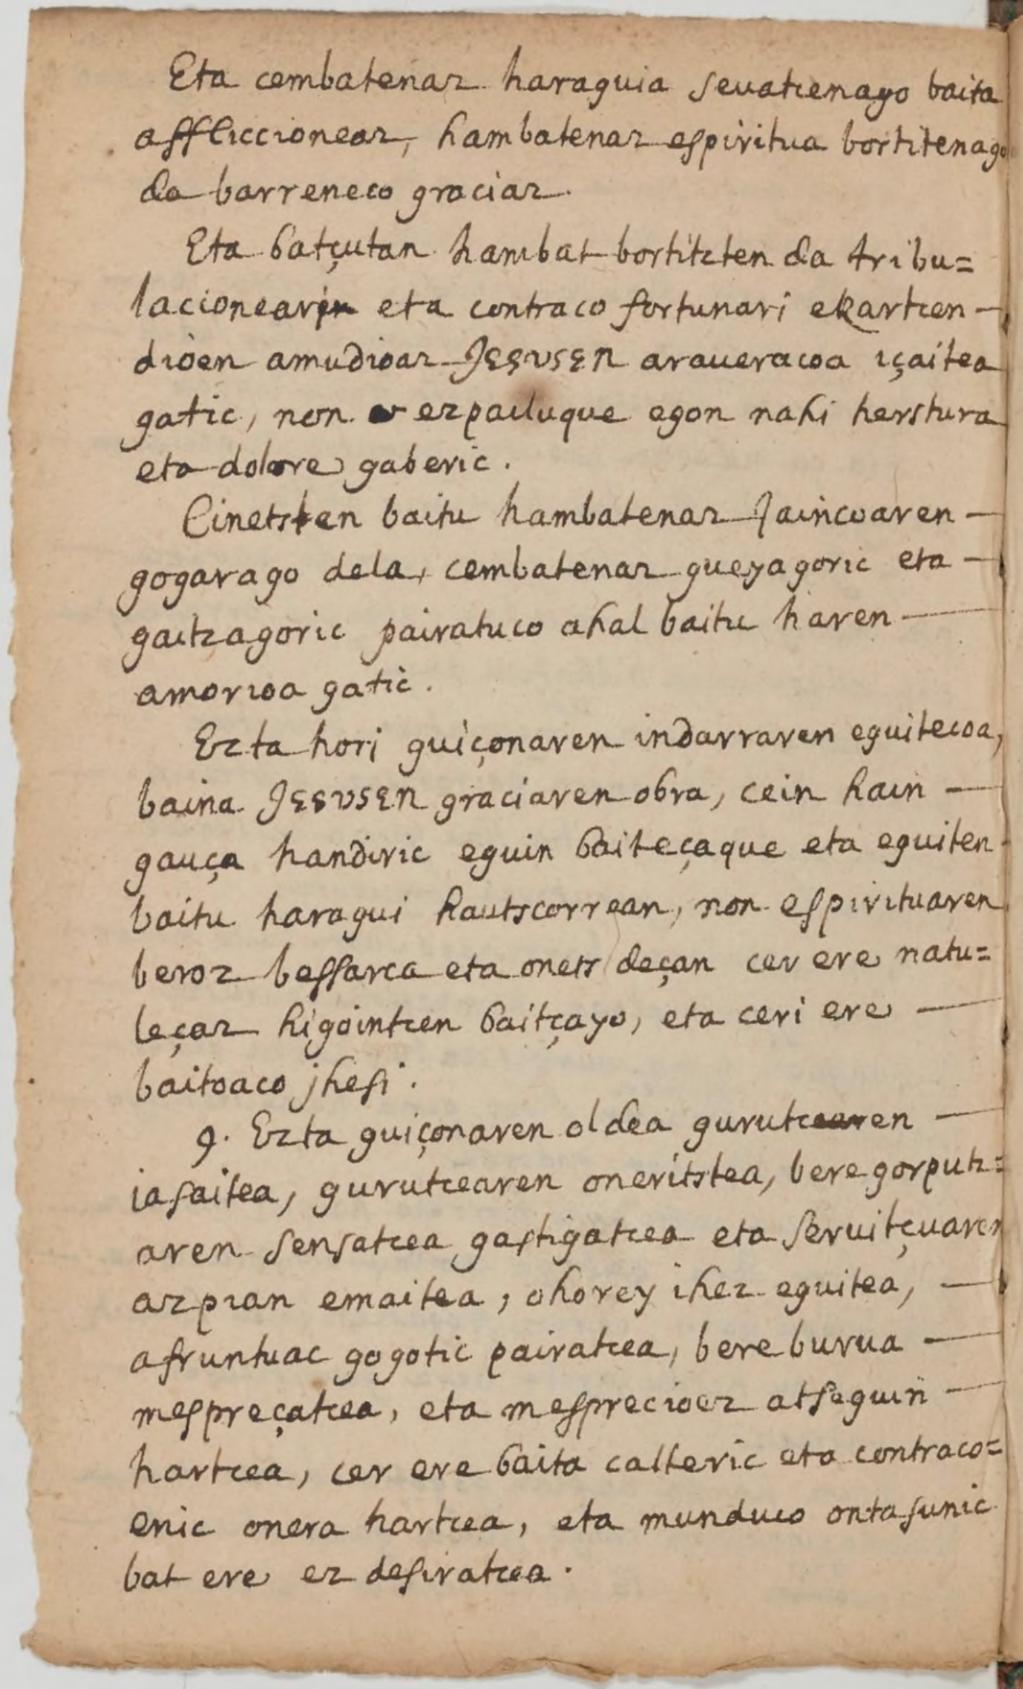 Eta cembatenaz haraguia sevatcenago baita
affliccioneaz, hambatenaz espiritua bortitenago
da barreneco graciaz.
Eta batçutan hambat bortitcten da tribu=
lacioneari eta contraco fortunari ekartcen —
dioen amudioaz JESVSEN araueracoa içaitea
gatic, non ezpailuque egon nahi herstura
eta dolore gaberic.
Cinetsten baitu hambatenaz Jaincoaren —
gogarago dela, cembatenaz gueyagoric eta —
gaitzagoric pairatuco ahal baitu haren —
amorioa gatic.
Ezta hori guiçonaren indarraren eguitecoa,
baina JESVSEN graciaren obra, cein hain —
gauça handiric eguin baiteçaque eta eguiten
baitu haragui hautscorrean, non espirituaren
beroz bessarca eta onets deçan cer ere natu=
leçaz higointcen baitçayo, eta ceri ere —
baitoaco jhesi.
9. Ezta guiçonaren oldea gurutcearen —
iasaitea, gurutcearen oneritstea, bere gorputz=
aren sensatcea gastigatcea eta servitçuaren
azpian emaitea, ohorey ihez eguitea, —
afruntuac gogotic pairatcea, bere burua —
mespreçatcea, eta mesprecioez atseguin —
hartcea, cer ere baita calteric eta contraco=
enic onera hartcea, eta munduco ontasunic
bat ere ez desiratcea.